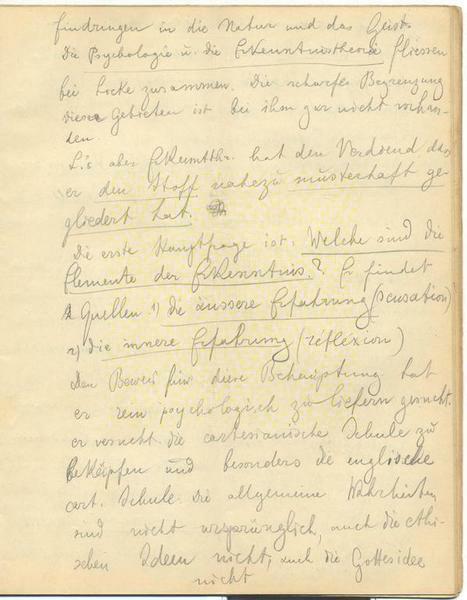 Eindringen in die Natur und das Geist.
Die Psychologie u. die Erkenntnistheorie fliessen
bei Locke zusammen. Die scharfe Begrenzung
dieser Gebieten ist bei ihm gar nicht vorhan-
den.
L.'s aber Erkenntthr. hat den Verdienst das
er den Stoff nahezu musterhaft ge-
gliedert hat.
Die erste Hauptfrage ist: Welche sind die
Elemente der Erkenntnis? Er findet
2 Quellen 1) die äussere Erfahrung (sensation)
2) die innere Erfahrung (réflexion)
Den Beweis für diese Behauptung hat
er rein psychologisch zu liefern gesucht.
er versucht die cartesianische Schule zu
bekäpfen und besonders die englische
cart. Schule. Die allgemeine Wahrheiten
sind nicht ursprünglich, auch die ethi-
schen Ideen nicht, auch die Gottesidee
nicht